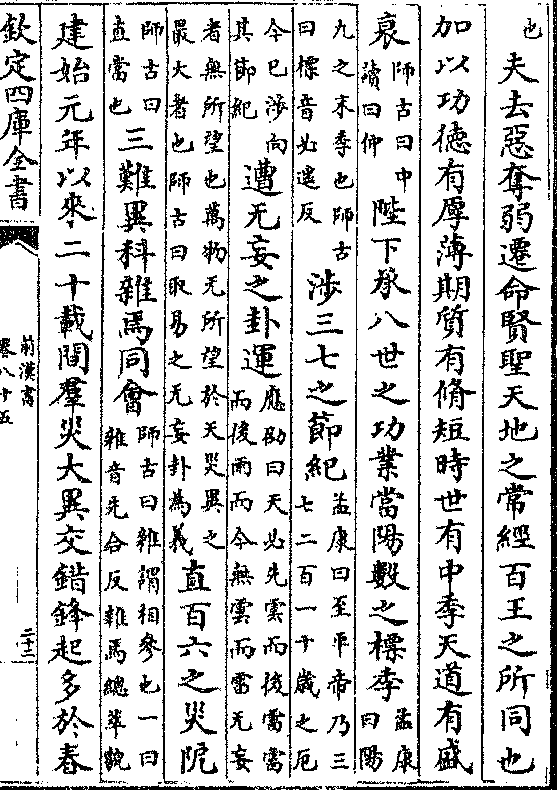 也夫去惡奪弱遷命賢聖天地之常經百王之所同也
加以功德有厚薄期質有脩短時世有中季天道有盛
衰師古曰中讀曰仲陛下承八世之功業當陽數之標季孟康曰陽
九之末季也師古曰標音必遙反涉三七之節紀孟康曰至平帝乃三七二百一十歲之厄
今已涉向其節紀遭无妄之卦運應劭曰天必先雲而後雷雷而後雨而今無雲而雷无妄
者無所望也萬物无所望於天災異之最大者也師古曰取易之无妄卦為義直百六之災阸
師古曰直當也三難異科雜焉同會師古曰雜謂相參也一曰雜音先合反雜焉總萃貌
建始元年以來二十載間羣災大異交錯鋒起多於春
欽定四庫全書
前漢書
卷八十五
二十三